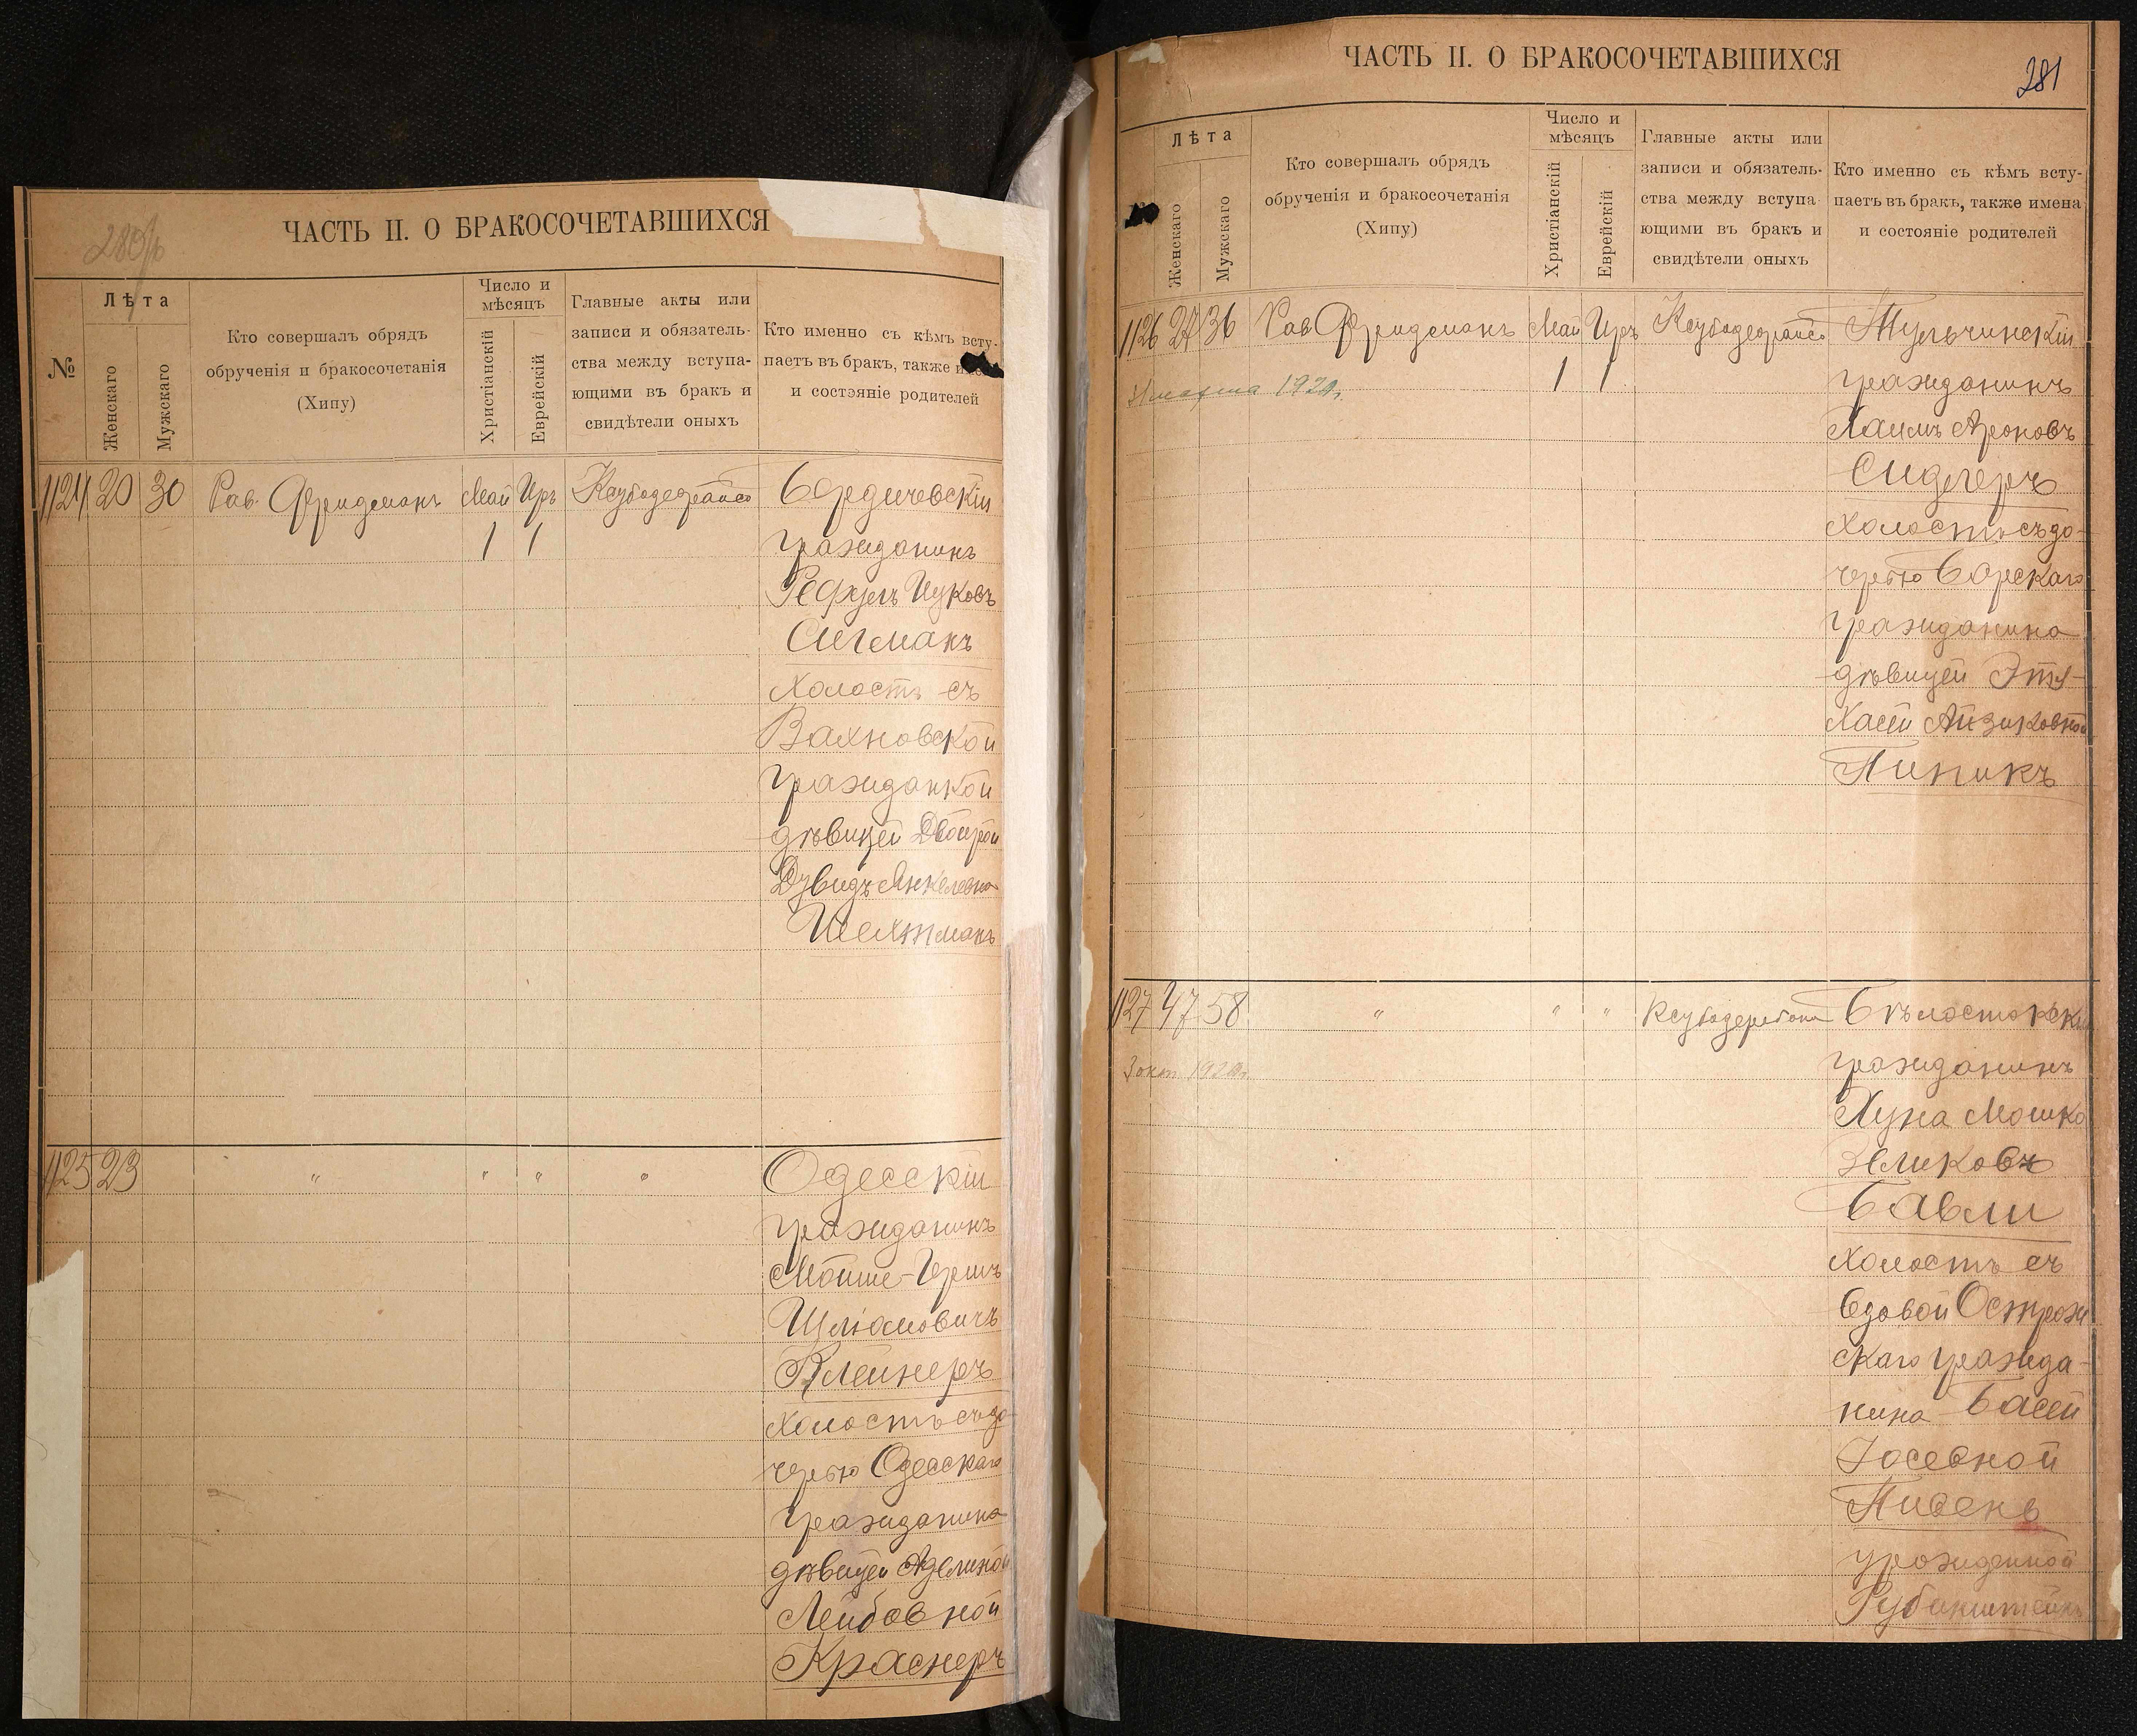 280об
ЧАСТЬ II. О БРАКОСОЧЕТАВШИХСЯ
№
Лѣта
Женскаго
Мужскаго
Кто совершалъ обрядъ
обрученія и бракосочетанія
(Хипу)
Число и
мѣсяцъ
Христіанскій
Еврейскій
Главные акты или
записи и обязатель-
ства между вступа-
ющими въ бракъ и
свидѣтели оныхъ
Кто именно съ кѣмъ всту-
паетъ въ бракъ, также
и состояніе родителей
1124 20 30 Рав. Фридманъ Май Иръ Бердичевскій
1 1 гражданинъ
Сигманъ
Холостъ съ
Вахновской
гражданкой
дѣвицей Двойрой
Дувидъ Янкелевна
Шехтманъ
1125 23 " " " " Одесскій
гражданинъ
Мойше-Гершъ
Шліомовичъ
Клейнеръ
Холостъ съ до
черью Одесскаго
гражданина
дѣвицей Аделиной
Лейбовной
Краснеръ
ЧАСТЬ II. О БРАКОСОЧЕТАВШИХСЯ
281
Лѣта
Женскаго
Мужскаго
Кто совершалъ обрядъ
обрученія и бракосочетанія
(Хипу)
Число и
мѣсяцъ
Христіанскій
Еврейскій
Главные акты или
записи и обязатель-
ства между вступа-
ющими въ бракъ и
свидѣтели оныхъ
Кто именно съ кѣмъ всту-
паетъ въ бракъ, также имена
и состояніе родителей
1126 27 36 Рав Фридманъ Май Иръ Тульчинскій
марта 1 1 гражданинъ
Хаимъ Ароновъ
Сидлеръ
Холостъ съ до-
черью Барскаго
гражданина
дѣвицей Эты-
Хаей Айзиковной
Пиникъ
1127 47 58 " " " Бѣлостокскій
3 окт гражданинъ
Хуна Мошко
Зеликовъ
Бавли
Холостъ съ
вдовой Острож
скаго гражда-
нина Басей
Іосевной
Пивень
урожденной
Рубинштейнъ